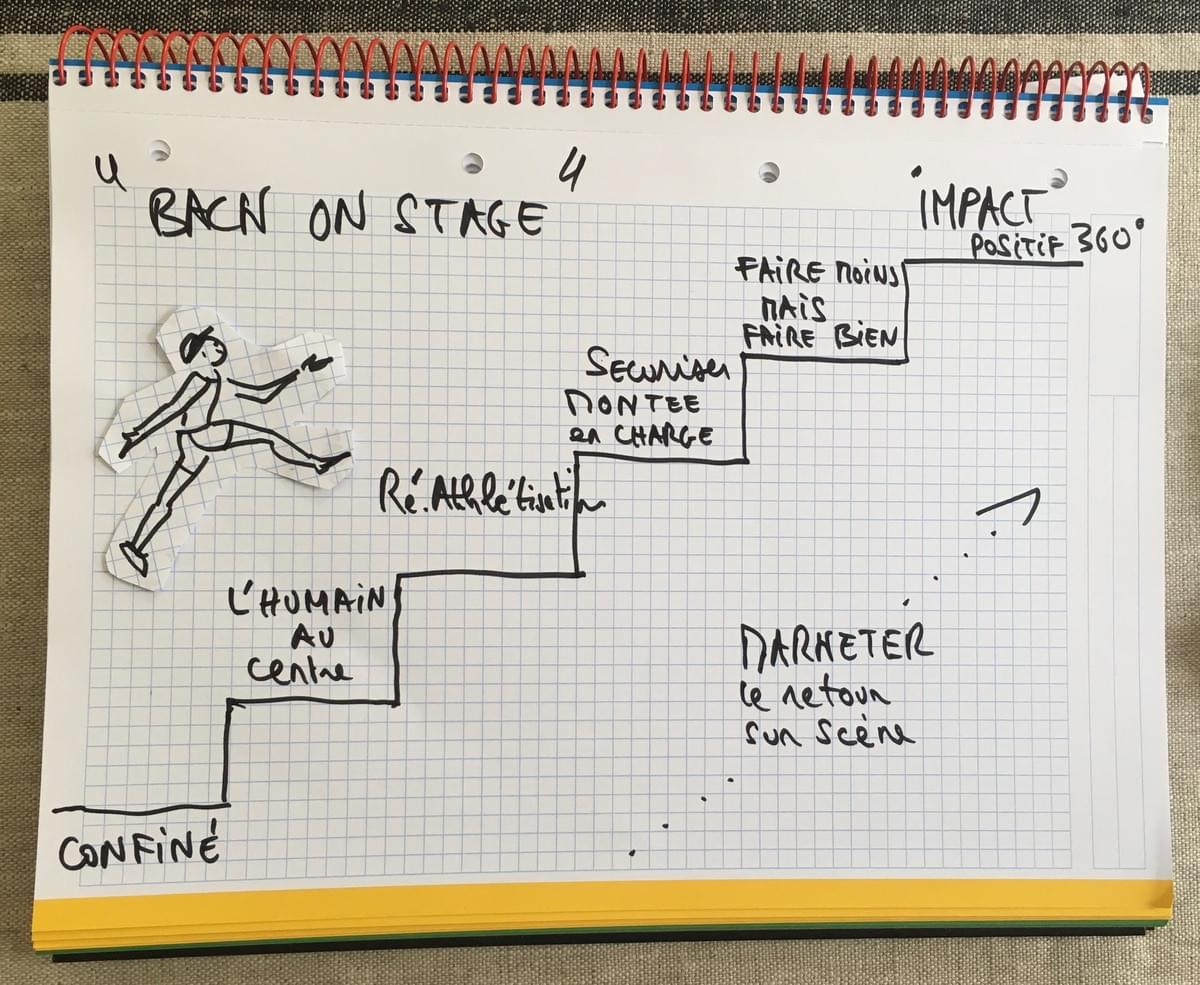 "BACK ON STAGE"
IMPACT
POSITIF 360°
FAIRE MOINS
MAIS
FAIRE BIEN
SECURISER
MONTEE
en CHARGE
Ré.Athlétisation
L'HUMAIN
AU
Centre
MARKETER
le retour
sur scène
CONFINÉ